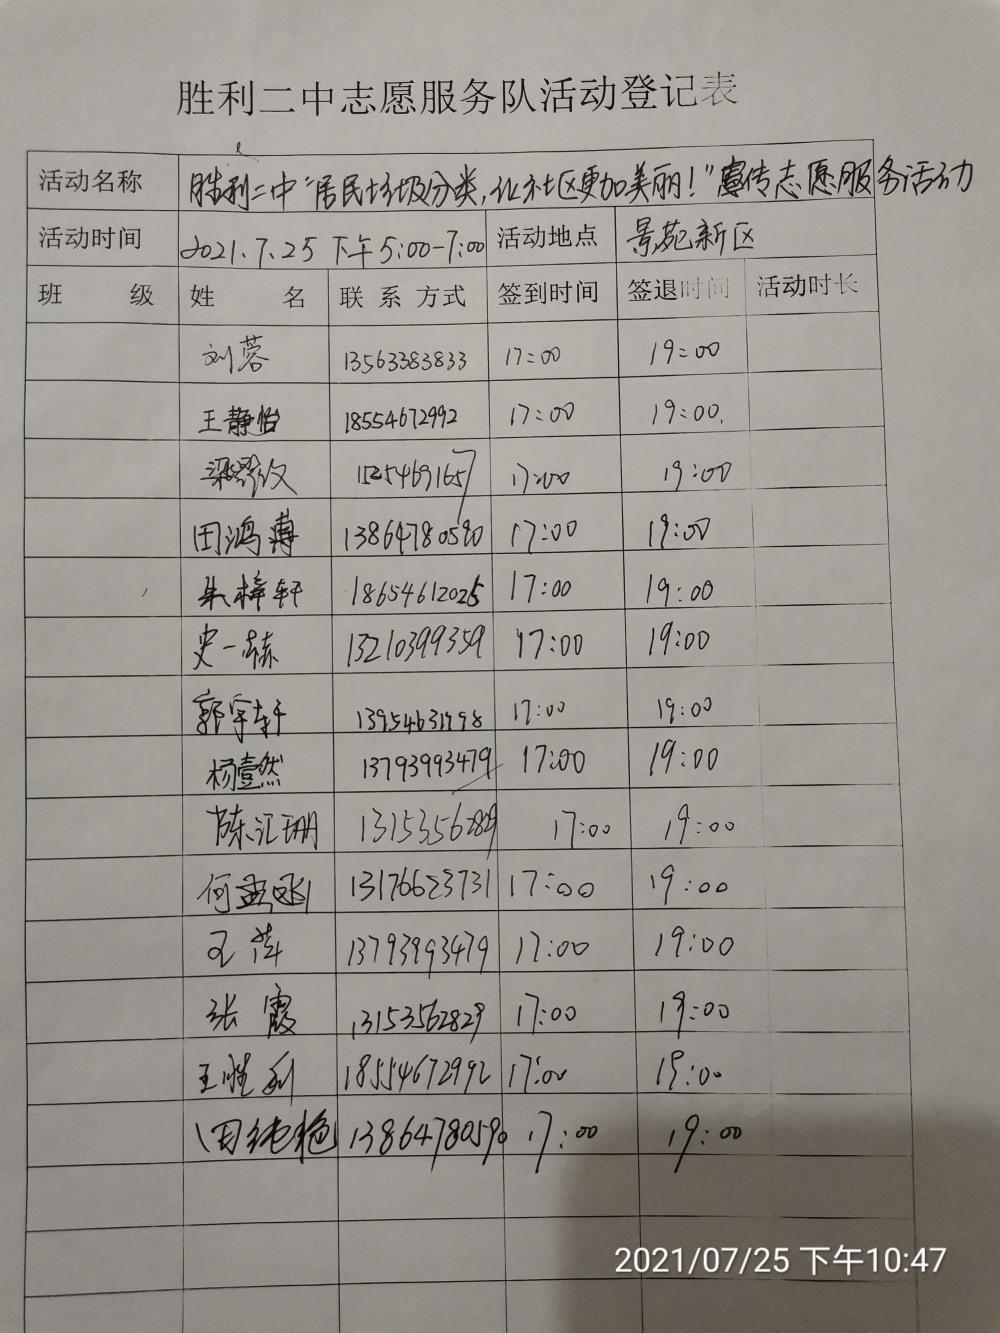 胜利二中志愿服务队活动登记表
活动名称 胜利二中"居民垃圾分类,让社区更加美丽!"宣传志愿服务活动
活动时间 2021.7.25 下午5:00-7:00 活动地点 景苑新区
班 级 姓 名 联系方式 签到时间 签退时间 活动时长
刘蓉 13563383833 17:00 19:00
王静怡 18554672992 17:00 19:00
梁 15254691657 17:00 19:00
田鸿溥 13864780590 17:00 19:00
朱梓轩 18654612025 17:00 19:00
史一赫 13210399359 17:00 19:00
郭宇轩 13954631998 17:00 19:00
杨壹然 13793993479 17:00 19:00
陈汇珊 13153562829 17:00 19:00
何孟 13176623731 17:00 19:00
王萍 13793993479 17:00 19:00
张霞 13153562829 17:00 19:00
王胜利 18554672992 17:00 19:00
田纯艳 13864780590 17:00 19:00
2021/07/25 下午10:47